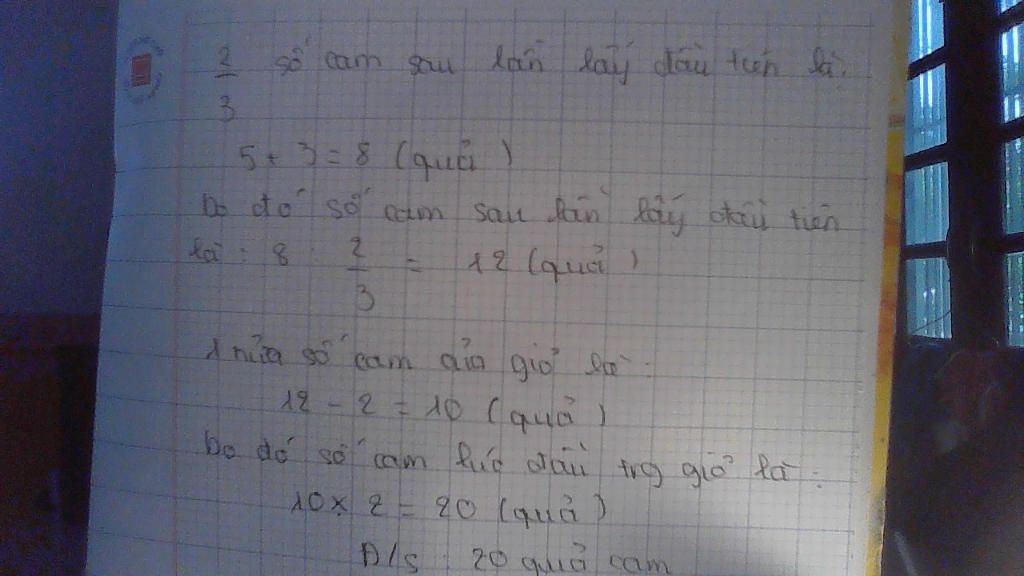 2/3 số cam sau lần lấy đầu tiên là:
5 + 3 = 8 (quả)
Do đó số cam sau lần lấy đầu tiên
là: 8 : 2/3 = 12 (quả)
1 nửa số cam của giỏ là:
12 - 2 = 10 (quả)
Do đó số cam lúc đầu trg giỏ là:
10 x 2 = 20 (quả)
Đ/s : 20 quả cam